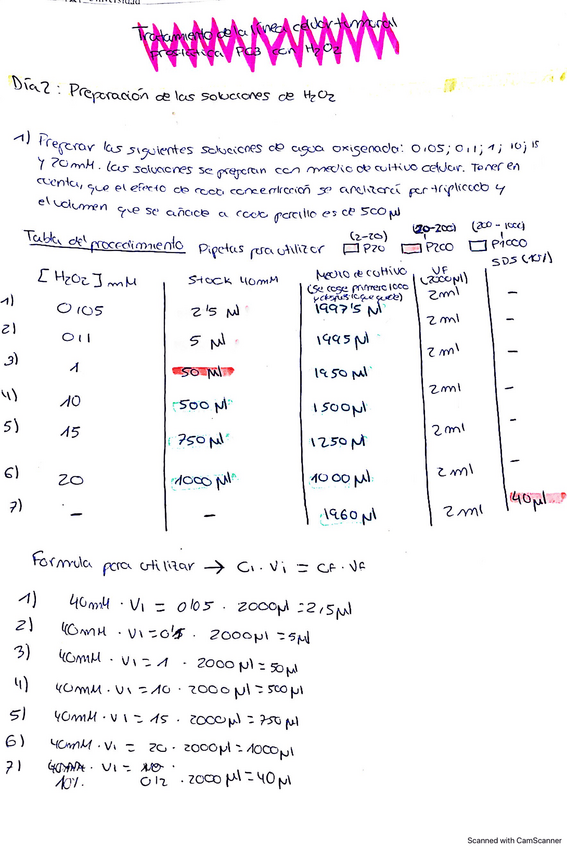 Tratamiento de la línea celular tumoral
prostática PC3 con H2O2
Día 2: Preparación de las soluciones de H2O2
1) Preparar las siguientes soluciones de agua oxigenada: 0'05; 0,1; 1; 10; 15
y 20 mM. Las soluciones se preparan con medio de cultivo celular. Tener en
cuenta, que el efecto de cada concentración se analizará por triplicado y
el volumen que se añade a cada pocillo es de 500 µl
Tabla del procedimiento Pipetas para utilizar (2-20) P20 (20-200) P200 (200-1000) P1000
[H2O2] mM Stock 40mM Medio de cultivo (se coge primero 1000 y después lo que quede) VF (2000 µl) SDS (10%)
1) 0'05 2'5 µl 1997'5 µl 2ml -
2) 0'1 5 µl 1995 µl 2ml -
3) 1 50 µl 1950 µl 2ml -
4) 10 500 µl 1500 µl 2ml -
5) 15 750 µl 1250 µl 2ml -
6) 20 1000 µl 1000 µl 2ml -
7) - - 1960 µl 2ml 40 µl
Formula para utilizar → Ci · Vi = CF · VF
1) 40mM · Vi = 0'05 · 2000 µl = 2,5 µl
2) 40mM · Vi = 0'1 · 2000 µl = 5 µl
3) 40mM · Vi = 1 · 2000 µl = 50 µl
4) 40mM · Vi = 10 · 2000 µl = 500 µl
5) 40mM · Vi = 15 · 2000 µl = 750 µl
6) 40mM · Vi = 20 · 2000 µl = 1000 µl
7) · Vi =
10%. 0'2 · 2000 µl = 40 µl
Scanned with CamScanner